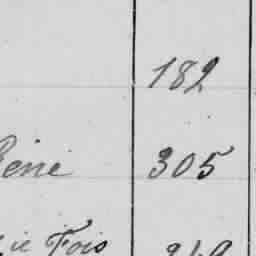 182
René 305
ie Fois